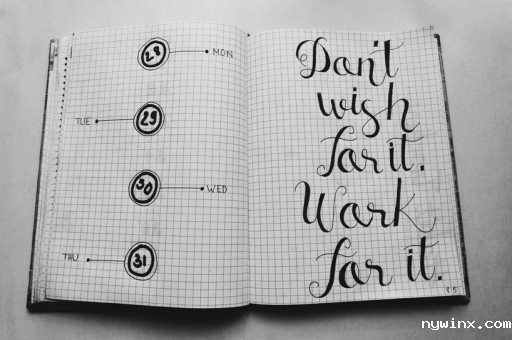 28
MON
TUE
29
30
WED
THU
31
Don't
wish
for it.
Work
for it.
85
nywinx.com